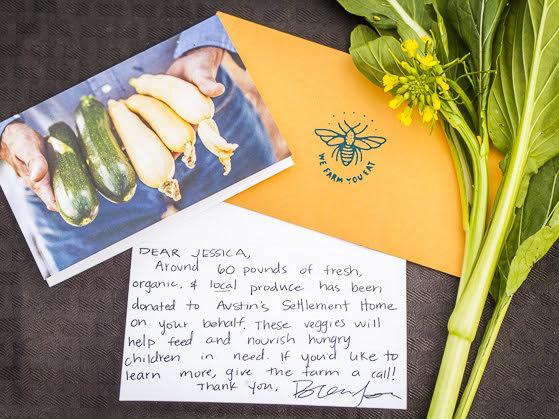 WE FARM YOU EAT
DEAR JESSICA,
Around 60 pounds of fresh,
organic, & local produce has been
donated to Austin's Settlement Home
on your behalf. These veggies will
help feed and nourish hungry
children in need. If you'd like to
learn more, give the farm a call!
Thank you,